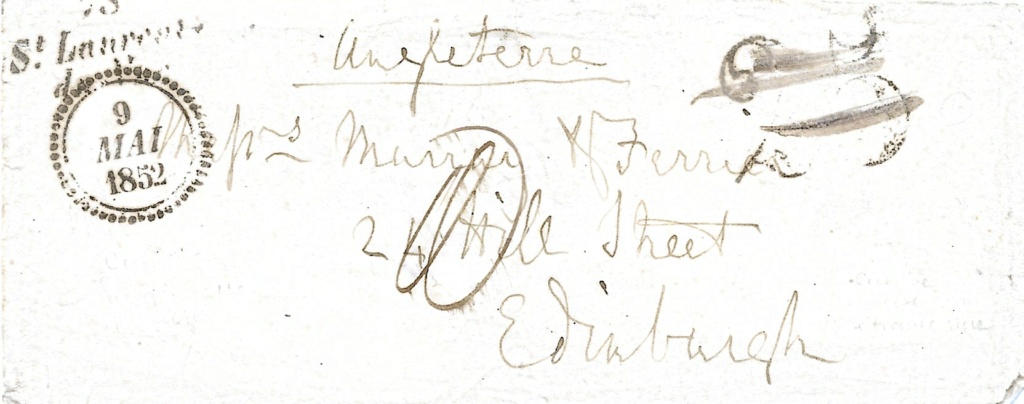 St. Laurent
9
MAI
1852
Angleterre
Murray & Ferrier
24 Hill Street
Edinburgh
10